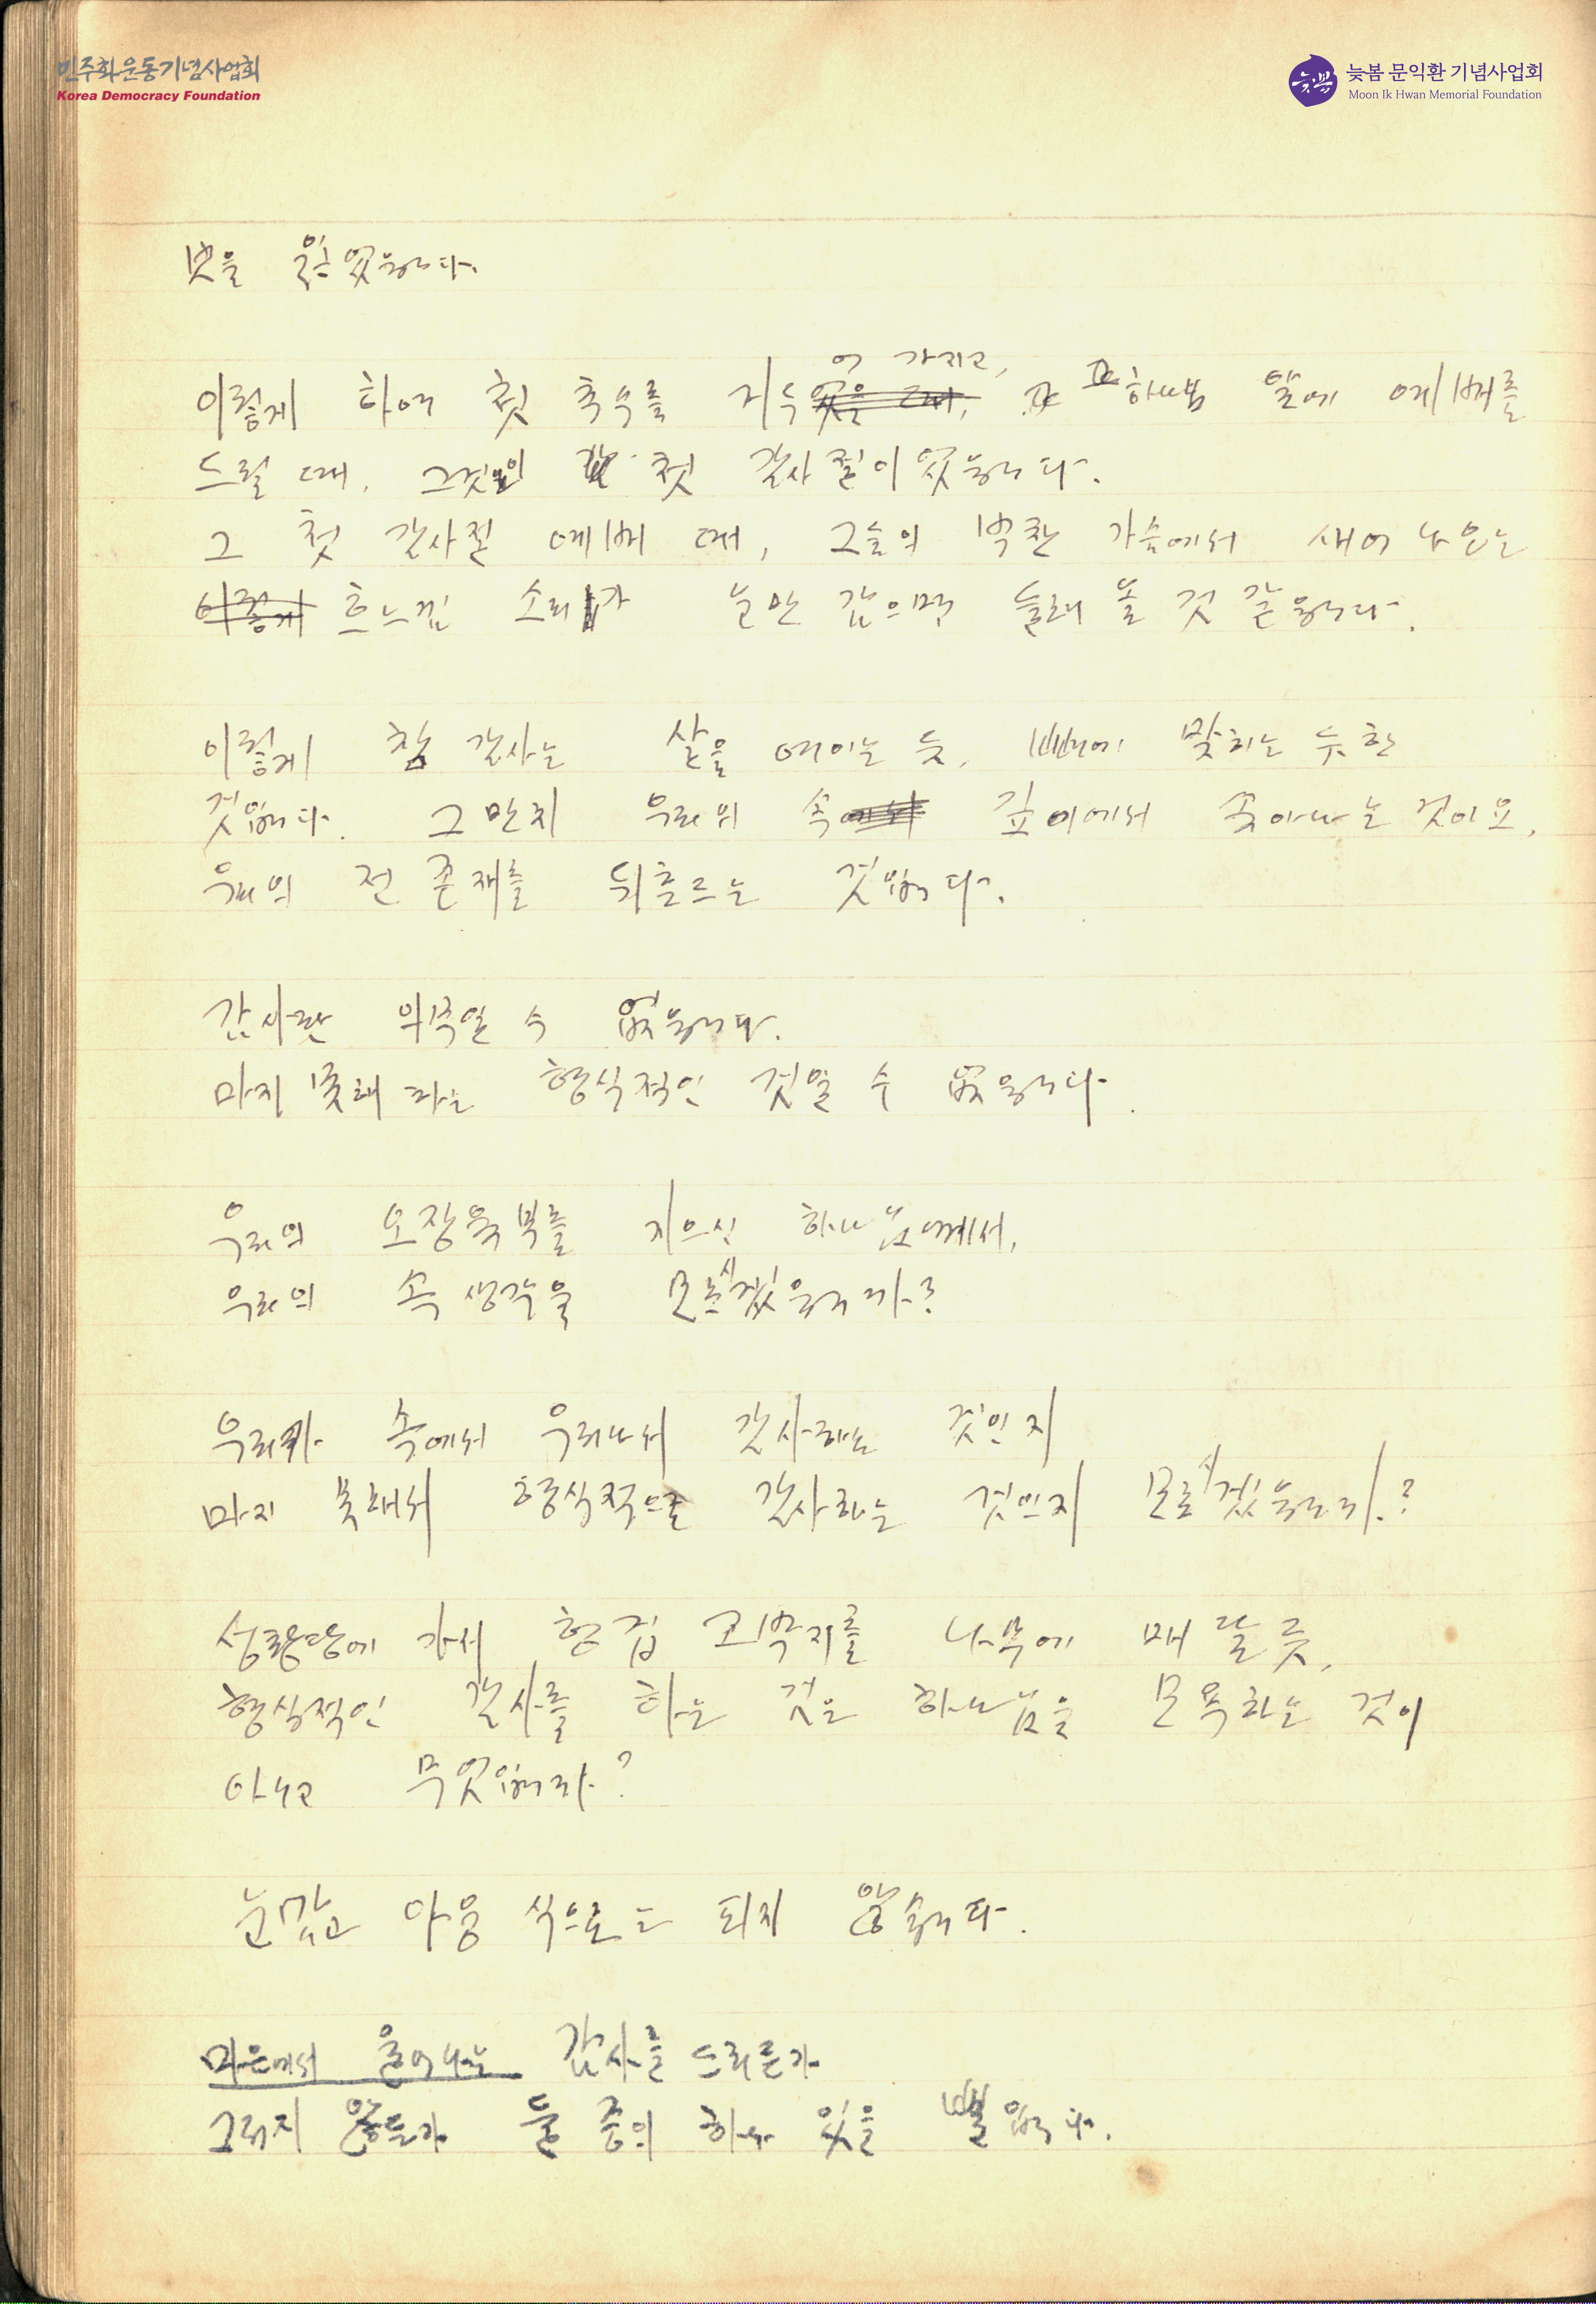 민주화운동기념사업회
Korea Democracy Foundation
늦봄 문익환 기념사업회
Moon Ik Hwan Memorial Foundation
벗을 잃었읍니다.
어 가지고,
이렇게 하여 첫 추수를 거두었을 때, 하나님 앞에 예배를
드릴 때, 그것이 첫 감사절이었읍니다.
그 첫 감사절 예배 때, 그들의 벅찬 가슴에서 새어 나오는
이렇게 흐느낌 소리가 눈만 감으면 들려 올 것 같읍니다.
이렇게 참 감사는 살을 에이는 듯, 뼈에 맞히는 듯한
것입니다. 그만치 우리의 속에서 깊이에서 솟아나는 것이요,
우리의 전 존재를 뒤흔드는 것입니다.
감사란 외식일 수 없읍니다.
마지 못해 하는 형식적인 것일 수 없읍니다.
우리의 오장육부를 지으신 하나님께서,
우리의 속 생각을 모르시겠읍니까?
우리가 속에서 우러나서 감사하는 것인지
마지 못해서 형식적으로 감사하는 것인지 모르시겠읍니까?
성황당에 가서 헝겊 조박지를 나무에 매 달 듯,
형식적인 감사를 하는 것은 하나님을 모욕하는 것이
아니고 무엇입니까?
눈감고 아웅 식으로는 되지 않습니다.
마음에서 울어나는 감사를 드리든가
그러지 않든가 둘 중의 하나 있을 뿐입니다.